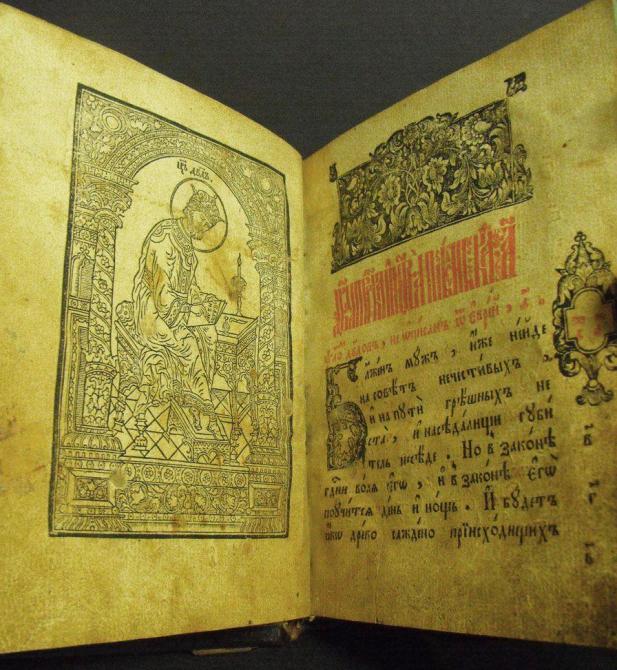 цр҃ь дв҃дъ
дв҃довъ, не пи́санъ ѿ є҆врє́й , а҃ .
Блаже́нъ мꙋ́жъ , и҆́же не и҆́де
на совѣ́тъ нечести́выхъ ,
и҆ на пꙋти́ грѣ́шныхъ не
ста̀ , и҆ на сѣда́лищи гꙋби́
тель не сѣ́де . Но в зако́нѣ
гдⷭ҇ни во́лѧ є҆гѡ̀ , и҆ в зако́нѣ є҆гѡ̀
поꙋчи́тсѧ де́нь и҆ но́щь . И҆ бꙋ́детъ
ꙗ҆́кѡ дре́во сажде́но при и҆схо́дищихъ
в҃
г҃